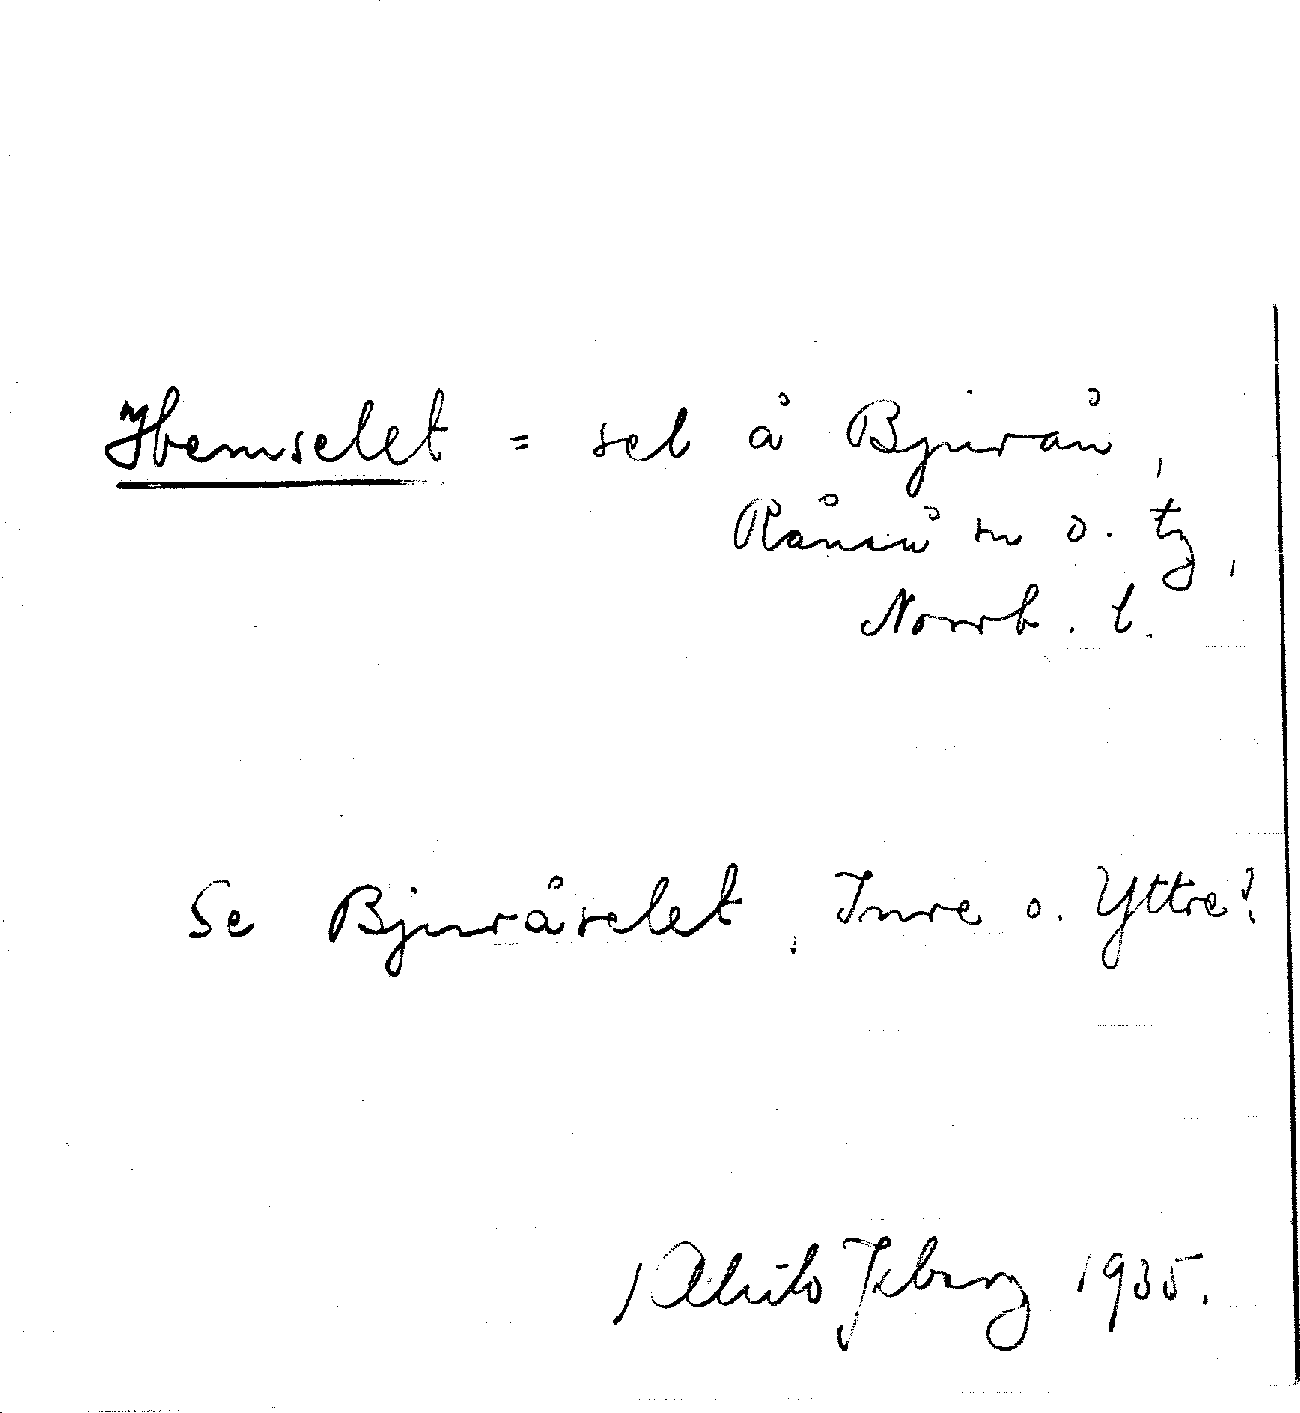 Hemselet = sel å Bjurån,
Råneå sn o. tg,
Norrb. l.
Se Bjuråselet, Inre o. Yttre?
1935.